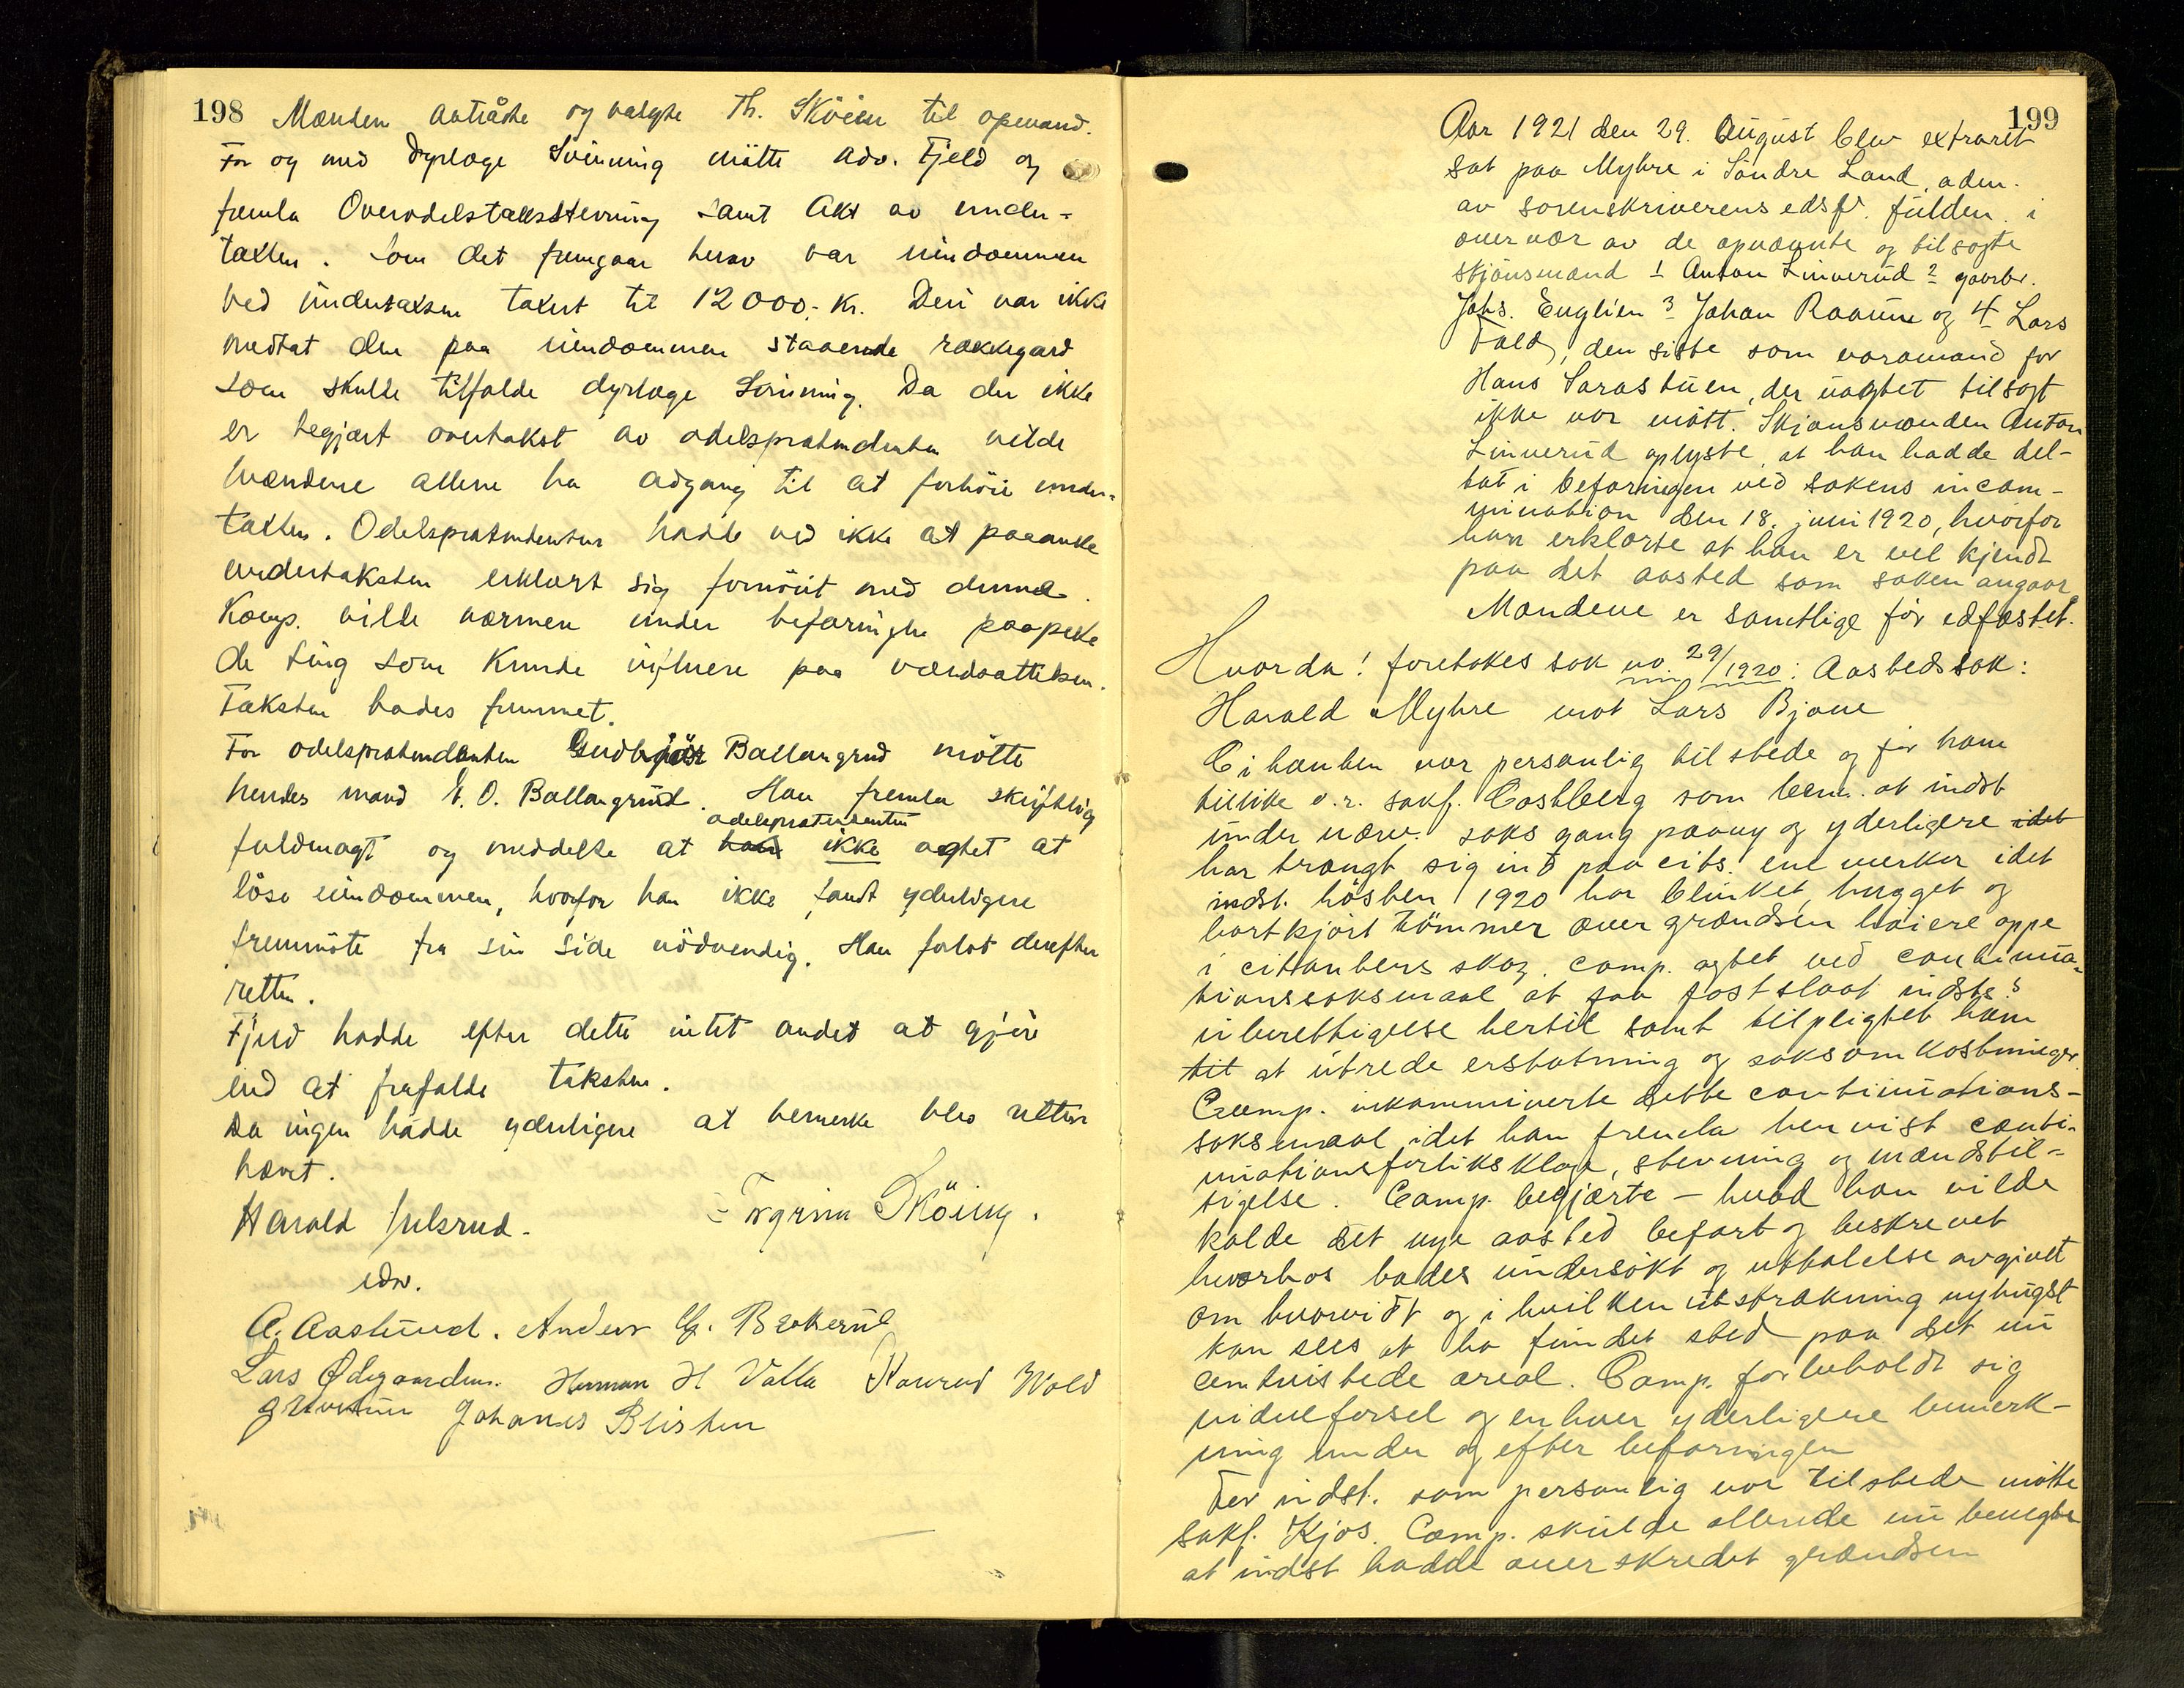 198 Mændene avtraadte og valgte Th. Sköien til opmand.
For og med dyrlæge Svinning mötte adv. Fjeld og
fremla Overodelstakststevning samt Akt av under-
taxten. Som det fremgaar herav var eiendommen
ved undertaksten takset til 12 000,- kr. Deri var ikke
medtat den paa eiendommen staaende rækkegard
som skulde tilfalde dyrlæge Svinning. Da der ikke
er begjært overtakst av odelsprætendenten vilde
mændene allene ha adgang til at forhöie under-
taxten. Odelsprætendenten hadde ved ikke at paaanke
undertaksten erklært sig fornöiet med denne.
Komp. vilde nærmere under befaringen paapeke
de ting som kunde influere paa værdsættelsen.
Taksten bades fremmet.
For odelsprætendenten Gudbjör Ballangrud mötte
hendes mand O. Ballangrud. Han fremla skriftlig
odelsprætendenten
fuldmagt og meddelte at han ikke agtet at
löse eiendommen, hvorfor han ikke fandt yderligere
fremmöte fra sin side nödvendig. Han forlot derefter
retten.
Fjeld hadde efter dette intet andet at gjöre
end at frafalde taksten.
Da ingen hadde yderligere at bemerke blev retten
hævet.
Harald Julsrud. Torgrim Sköien.
edsv.
A. Aaslund. Anders G. Brekerud
Lars Ödegaarden. Herman H Valla Konrad Wold
Johannes Blisten
199
Aar 1921 den 29. August blev extraret
sat paa Myhre i Söndre Land, adm.
av sorenskriverens edsf. fuldm. i
overvær av de opnævnte og tilsagte
skjönsmænd 1 Anton Linnerud 2 gaardbr.
Johs. Englien 3 Johan Raaum og 4 Lars
Fald, den siste som varamand for
Hans Sarastuen, der uagtet tilsagt
ikke var mött. Skjönsmanden Anton
Linnerud oplyste, at han hadde del-
tat i befaringen ved sakens incam-
mination den 18. juni 1920, hvorfor
han erklærte at han er vel kjendt
paa det aasted som saken angaar.
Mændene er samtlige för edfæstet.
Hvorda! foretokes sak no. 29/1920: Aastedssak:
Harald Myhre mot Lars Bjone
Citanten var personlig tilstede og for ham
tillike o.r. sakf. Castberg som bem. at indst
under nærv. saks gang paany og yderligere idet
har trængt sig ind paa cits. enemerker idet
indst. hösten 1920 har blinket, hugget og
bortkjört tömmer over grændsen höiere oppe
i citantens skog. Comp. agtet ved continua-
tionssöksmaal at faa fastslaat indsts.
uberettigelse hertil samt tilpligtet ham
til at utrede erstatning og saksomkostninger.
Comp. inkamminerte dette continuations-
söksmaal idet han fremla henvist conti-
nuationsforliksklage, stevning og mændstil-
sigelse. Comp. begjærte - hvad han vilde
kalde det nye aasted befart og beskrevet
hvorhos bades undersökt og uttalelse avgivet
om hvorvidt og i hvilken utstrækning nyhugst
kan sees at ha fundet sted paa det nu
omtvistede areal. Comp. forbeholdt sig
vidneförsel og enhver yderligere bemerk-
ning under og efter befaringen
For indst. som personlig var tilstede mötte
sakf. Kjos. Comp. skulde allerede nu benegte
at indst hadde overskredet grændsen